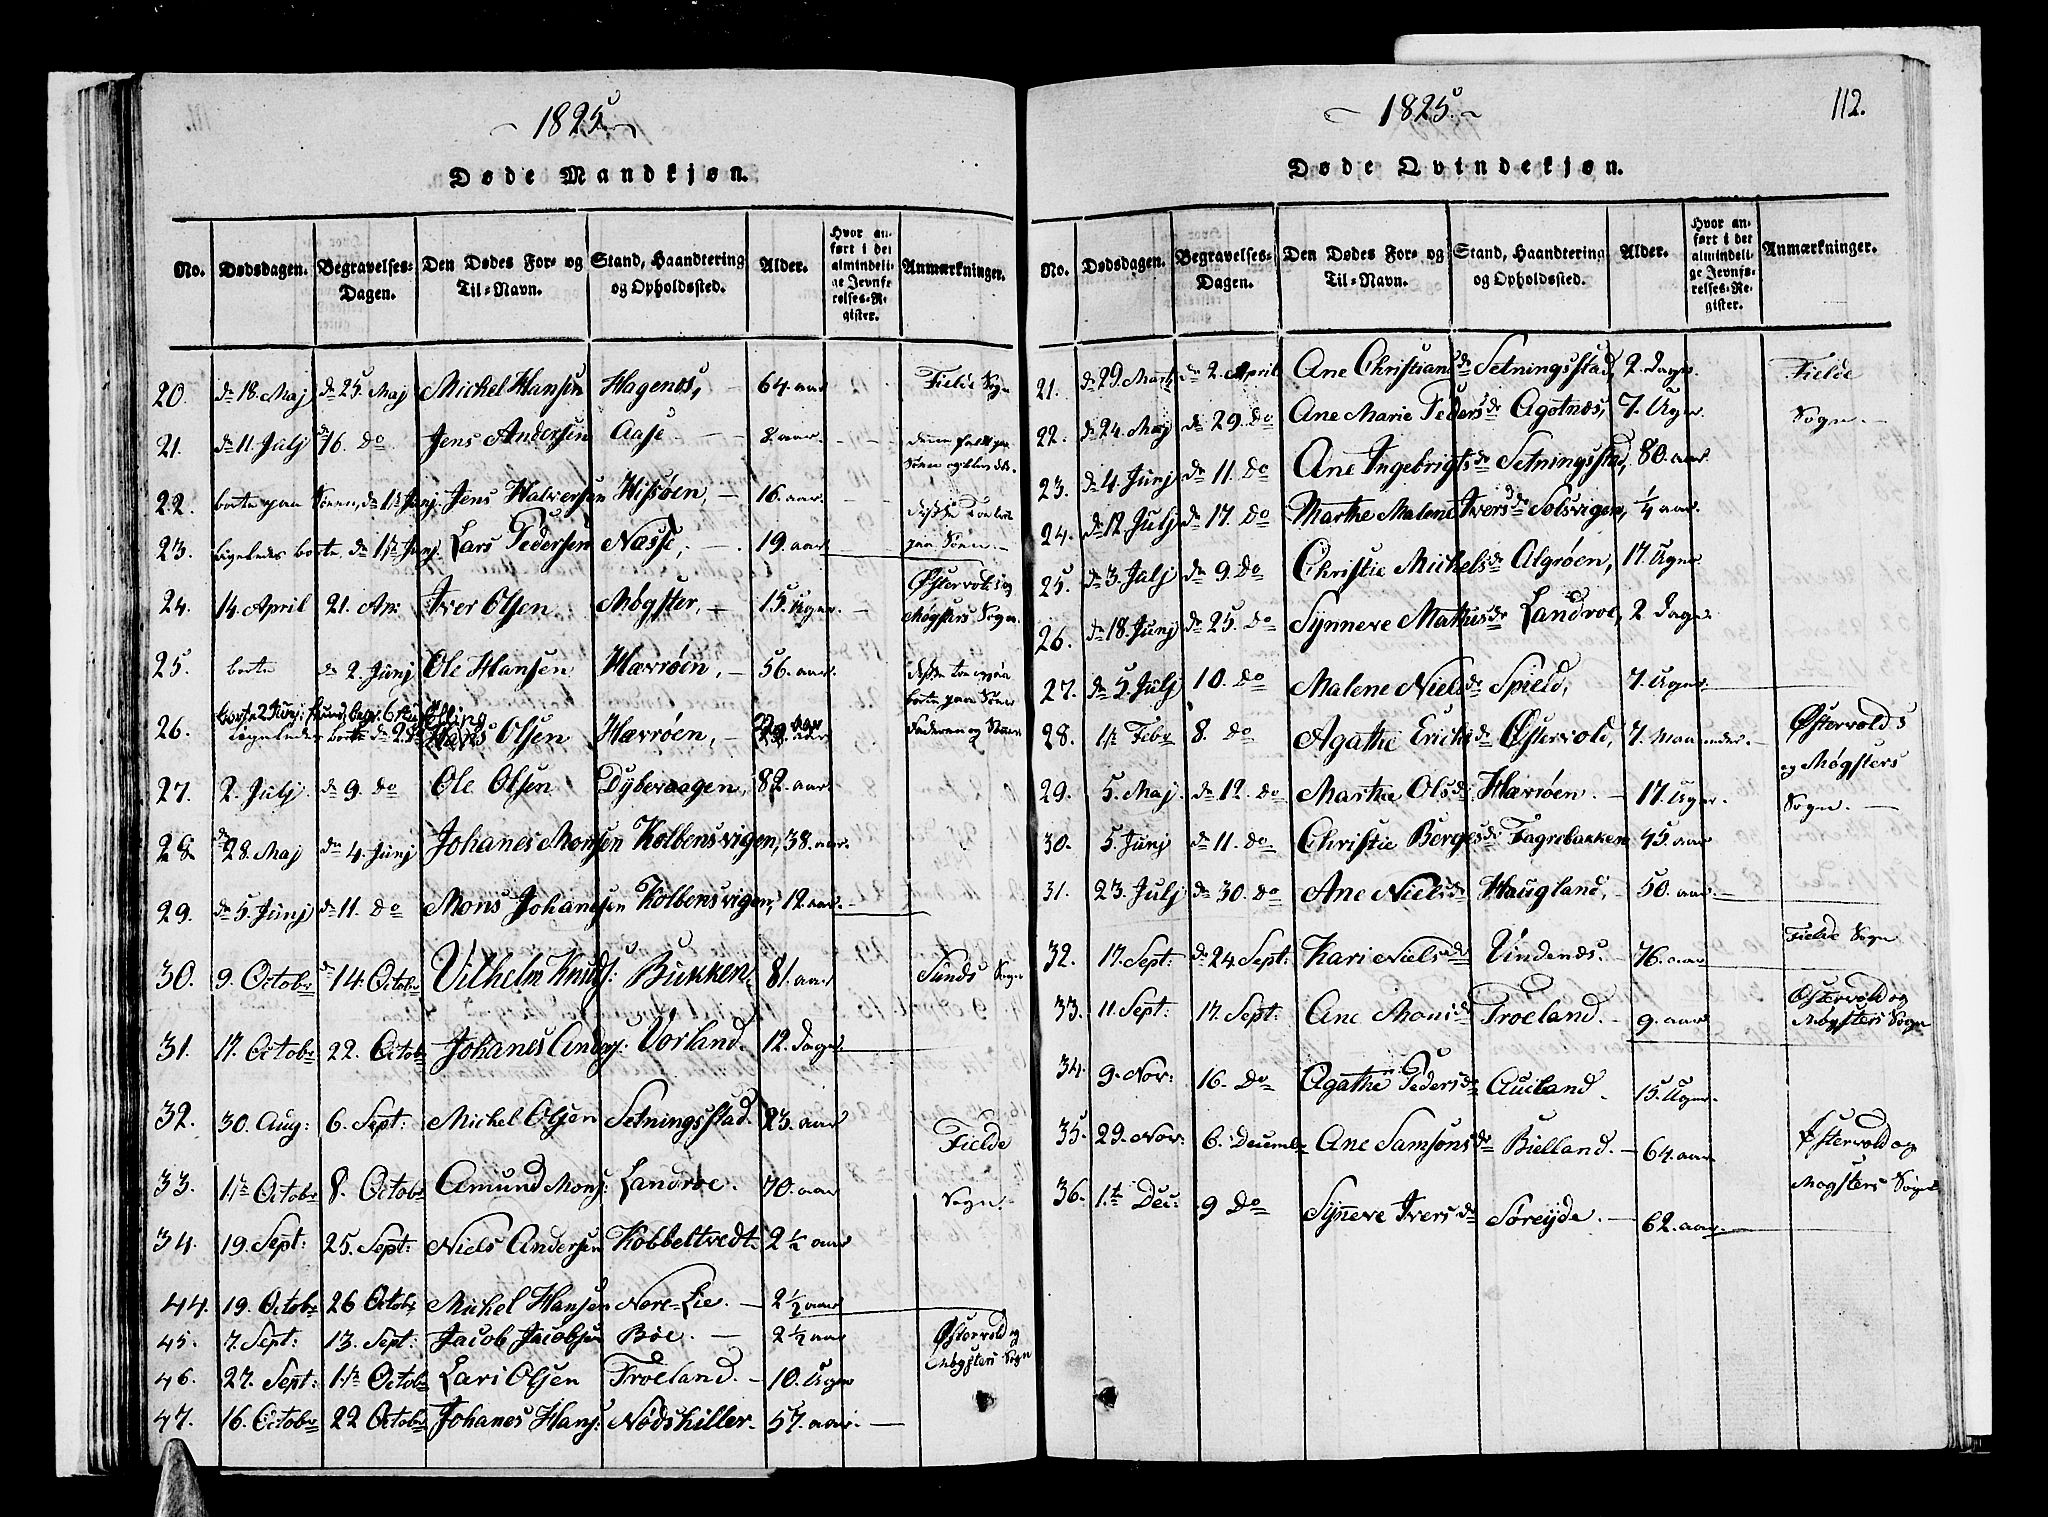 1825
Døde Mandkjøn.
No. Dødsdagen. Begravelses-Dagen. Den Dødes For- og Til-Navn. Stand, Haandtering og Opholdssted. Alder. Hvor anført i det almindelige Jevnførelses-Register. Anmærkninger.
20. d. 18. Maj d. 25. Maj Michel Hansen Hagenes, 64. aar Fielde Sogn
21. d. 11. Julj d. 16. do Jens Andersen Aase 8. aar
22. borte paa Søen, d. 1ste Junj Jens Halversen Hisøen, 16. aar
23. ligeledes borte, d. 1ste Junj Lars Pedersen Næsse, 19. aar paa Søen
24. 14 April 21. Apr: Iver Olsen Møgster, 15. Uger Østervolds og Møgsters Sogn.
25. borte d. 2. Junj Ole Hansen Hævrøen, 56. aar
26. Hans Olsen Hævrøen,
27. 2. Julj d. 9. do Ole Olsen Dybevaagen, 82. aar
28. d. 28. Maj d. 4. Junj Johanes Monsen Kolbensvigen, 38. aar
29. d. 5. Junj d. 11. do Mons Johanesen Kolbensvigen, 12. aar
30. 9. Octobr d. 14. Octobr Vilhelm Knuds: Bukken 81. aar Sunds Sogn
31. 17. Octobr 22. Octobr Johanes Anders: Vorland. 12. Dage
32. 30. Aug: 6. Sept: Michel Olsen Setningsstad. 23. aar Fielde
33. 1ste Octobr 8. Octobr Amund Mons: Landroe. 70. aar Sogn.
34. 19. Sept: 25. Sept: Niels Andersen Kobbeltvedt. 2 1/2 aar
44. 19. Octobr 26 Octobr Michel Hansen Nore-Lie. 2 1/2 aar
45. 7. Sept: 13. Sept: Jacob Jacobsen Bøe. 2 1/2 aar Østervold og
46. 27. Sept: 1ste Octobr Lars Olsen Troeland. 10. Uger Møgsters Sogn
47. 16. Octobr 22 Octobr Johanes Hans: Nødskiller. 57. aar
1825.
112.
Døde Qvindekjøn.
No. Dødsdagen. Begravelses-Dagen. Den Dødes For- og Til-Navn. Stand, Haandtering og Opholdssted. Alder. Hvor anført i det almindelige Jevnførelses-Register. Anmærkninger.
21. d. 29. Marts d. 2. April Ane Christiansdr Setningsstad, 2. Dage Fielde
22. d. 24. Maj d. 29. do Ane Marie Pedersdr Agotnæs, 7. Uger Sogn.
23. d. 4. Junj d. 11. do Ane Ingebrigtsdr Setningsstad, 80. aar
24. d. 12. Julj d. 17. do Marthe Malene Iversdr Solsvigen, 1/4 aar
25. d. 3. Julj d. 9. do Christie Michelsdr Algrøen, 17. Uger
26. d. 18. Junj d. 25. do Synneve Mathisdr Landroe, 2 Dage
27. d. 5. Julj 10. do Malene Nielsdr Spield, 7. Uger
28. 1ste Febr 8. do Agathe Ericksdr Østervold, 7. Maaneder Østervolds og Møgsters
29. 5. Maj d. 12. do Marthe Olsdr Hævrøen. 17. Uger Sogn.
30. 5. Junj d. 11. do Christie Bergesdr Fagrebakken 45. aar
31. 23. Julj d. 30. do Ane Nielsdr Haugland, 50. aar
32. 17. Sept: d. 24. Sept: Kari Nielsdr Vindenes. 76. aar Fielde Sogn
33. 11. Sept: 17. Sept: Ane Monsdr Troeland. 9. aar Østervold og Møgsters Sogn
34. 9. Nov: 16. do Agathe Pedersdr Aueland. 15. Uger
35. 29. Nov: 6. Decembr Ane Samsonsdr Bielland. 64. aar Østervold og
36. 1.t Dec: 9 do Synneve Iversdr Søreyde. 62. aar Møgsters Sogn